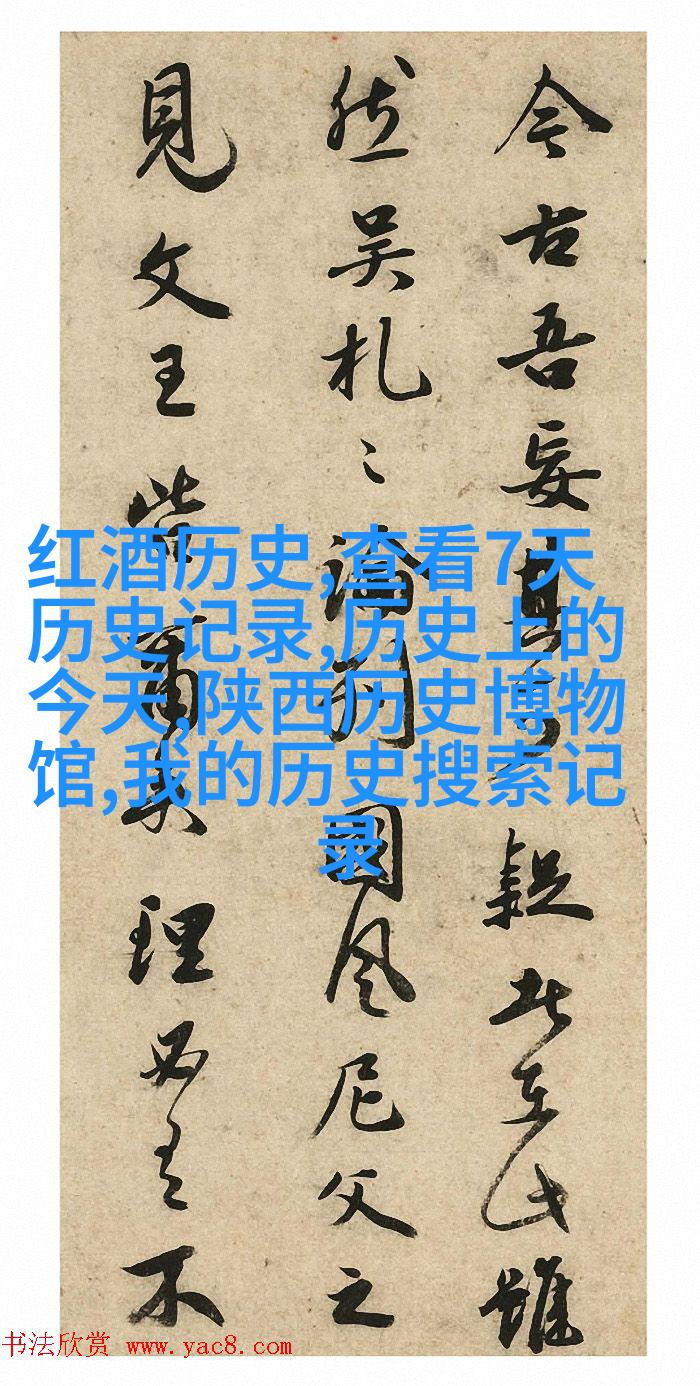 今古吾妄其疑至此雖
然吴札〻論列國風尼父之
見文王理必有不
红酒历史,查看7天
历史记录,历史上的
今天,陕西历史博物
馆,我的历史搜索记
录
书法欣赏 www.yac8.com